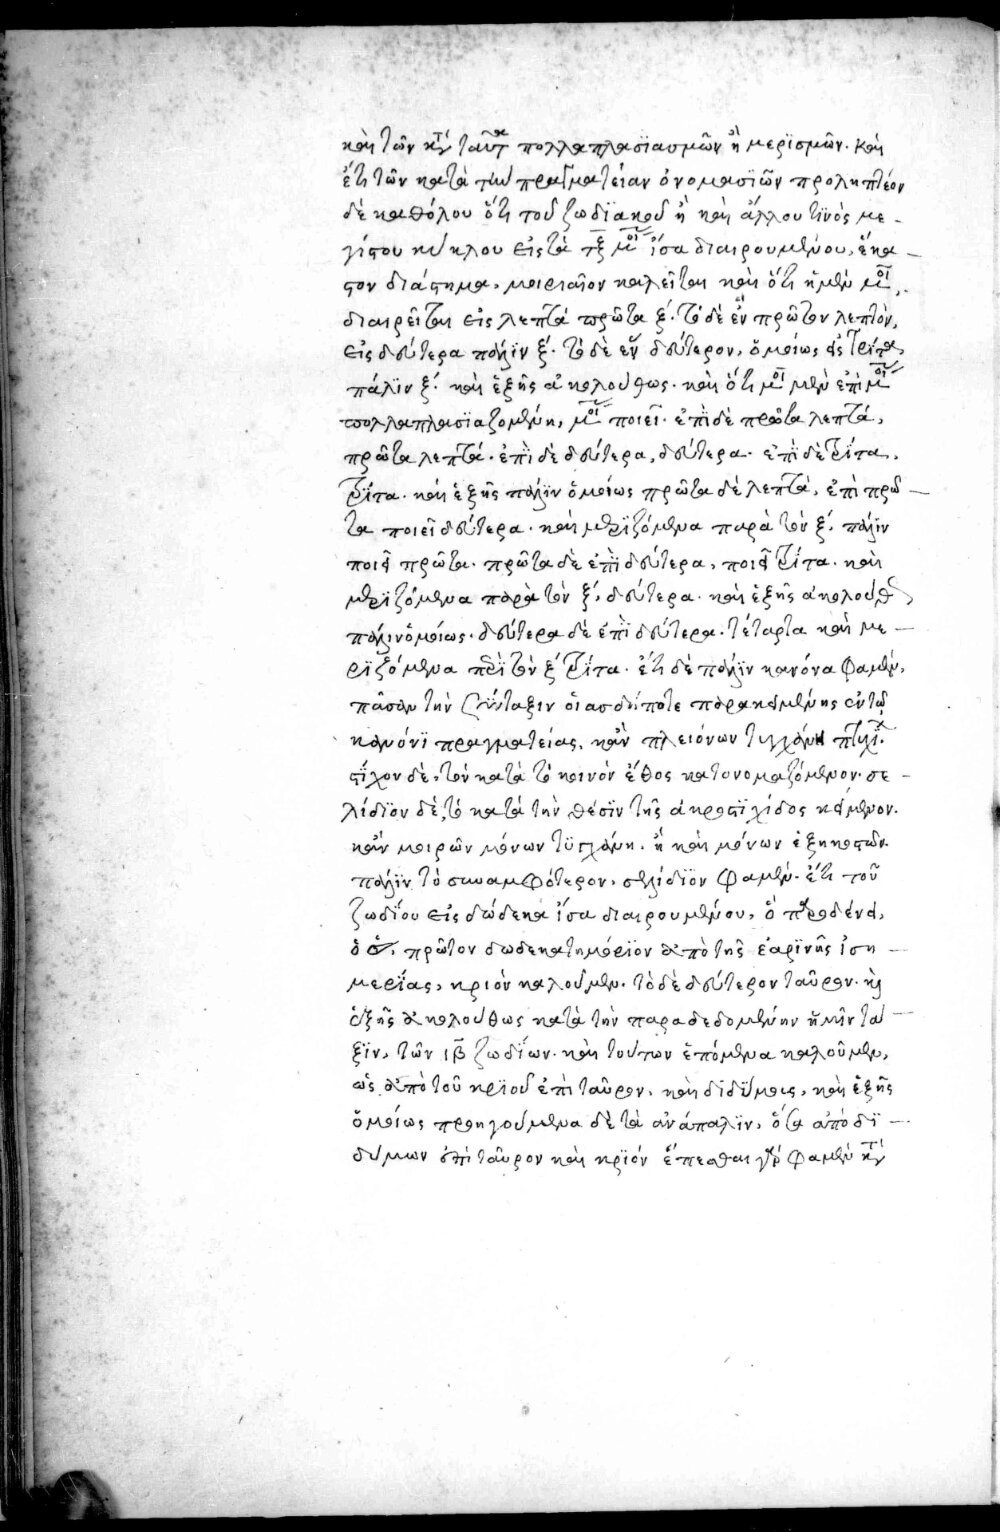 καὶ τῶν κατὰ ταῦτα πολλαπλασϊασμῶν ἢ μερϊσμῶν. καὶ
ἔτι τῶν κατὰ τὴν πραγματείαν ὀνομασιῶν προληπτέον
δὲ καθόλου ὅτι τοῦ ζωδϊακοῦ ἢ καὶ ἄλλου τϊνὸς με-
γίστου κύκλου εἰς τὰ τξ μοί ἴσα διαιρουμένου, ἕκα-
στον διάστημα, μοιριαῖον καλεῖται καὶ ὅτι ἡ μὲν μοῖ,
διαιρεῖται εἰς λεπτὰ πρῶτα ξ. τὸ δὲ ἓν πρῶτον λεπτὸν,
εἰς δεύτερα πάλϊν ξ. τὸ δὲ ἓν δεύτερον, ὁμοίως εἰς τρίτα,
πάλϊν ξ. καὶ ἑξῆς ἀκολούθως. καὶ ὅτι μοῖ μὲν ἐπὶ μοῖ
πολλαπλασϊαζομένη, μοί ποιεῖ. ἐπὶ δὲ πρῶτα λεπτά,
πρῶτα λεπτά. ἐπὶ δὲ δεύτερα, δεύτερα. ἐπὶ δὲ τρίτα,
τρίτα. καὶ ἑξῆς πάλϊν ὁμοίως πρῶτα δὲ λεπτὰ, ἐπὶ πρῶ-
τα ποιεῖ δεύτερα. καὶ μερϊζόμενα παρὰ τὸν ξ, πάλϊν
ποιεῖ πρῶτα. πρῶτα δὲ ἐπὶ δεύτερα, ποιεῖ τρίτα. καὶ
μερϊζόμενα παρὰ τὸν ξ, δεύτερα. καὶ ἑξῆς ἀκολούθως
πάλϊν ὁμοίως. δεύτερα δὲ ἐπὶ δεύτερα. τέταρτα καὶ με-
ρϊζόμενα παρὰ τὸν ξ τρίτα. ἔτι δὲ πάλϊν κανόνα φαμὲν,
πᾶσαν τὴν σύνταξιν οἱασδήποτε παρακειμένης ἐν τῷ
κανόνϊ πραγματείας, κἂν πλειόνων τυγχάνη
στίχον δὲ, τὸν κατὰ τὸ κοινὸν ἔθος κατονομαζόμενον. σε-
λίδϊον δὲ, τὸ κατὰ τὴν θέσϊν τῆς ἀκροστϊχίδος κείμενον.
κἂν μοιρῶν μόνων τϋγχάνη. ἢ καὶ μόνων ἑξηκοστῶν.
πάλϊν τὸ συναμφότερον, σελίδϊον φαμὲν. ἔτι τοῦ
ζωδΐου εἰς δώδεκα ἴσα διαιρουμένου,
πρῶτον δωδεκατημόρϊον ἀπὸ τῆς ἐαρϊνῆς ἰση-
μερΐας, κριὸν καλοῦμεν. τὸ δὲ δεύτερον ταῦρον. καὶ
ἑξῆς ἀκολούθως κατὰ τὴν παραδεδομένην ἡμῖν τά-
ξϊν, τῶν ιβ ζωδΐων. καὶ τούτων ἑπόμενα καλοῦμεν,
ὡς ἀπὸ τοῦ κρϊοῦ ἐπὶ ταῦρον, καὶ διδύμοις, καὶ ἑξῆς
ὁμοίως προηγούμενα δὲ τὰ ἀνάπαλϊν, ὅτα ἀπὸ δϊ-
δύμων ἐπὶ ταῦρον καὶ κρϊόν ἕπεσθαι γάρ φαμὲν κατὰ